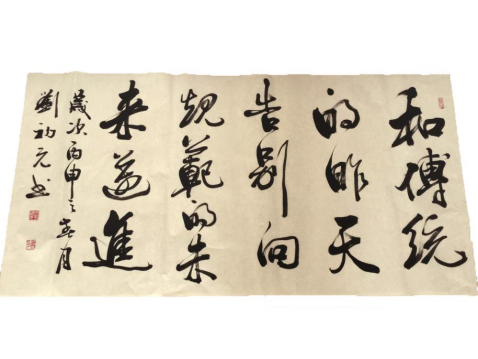 和傳统
的昨天
告别向
规範的未
来邁進
歲次丙申之春月
劉初元书